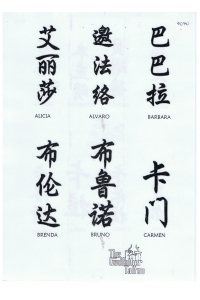 艾丽莎 邀法络 巴巴拉
ALICIA ALVARO BARBARA
布伦达 布鲁诺 卡门
BRENDA BRUNO CARMEN
The
Tattoo